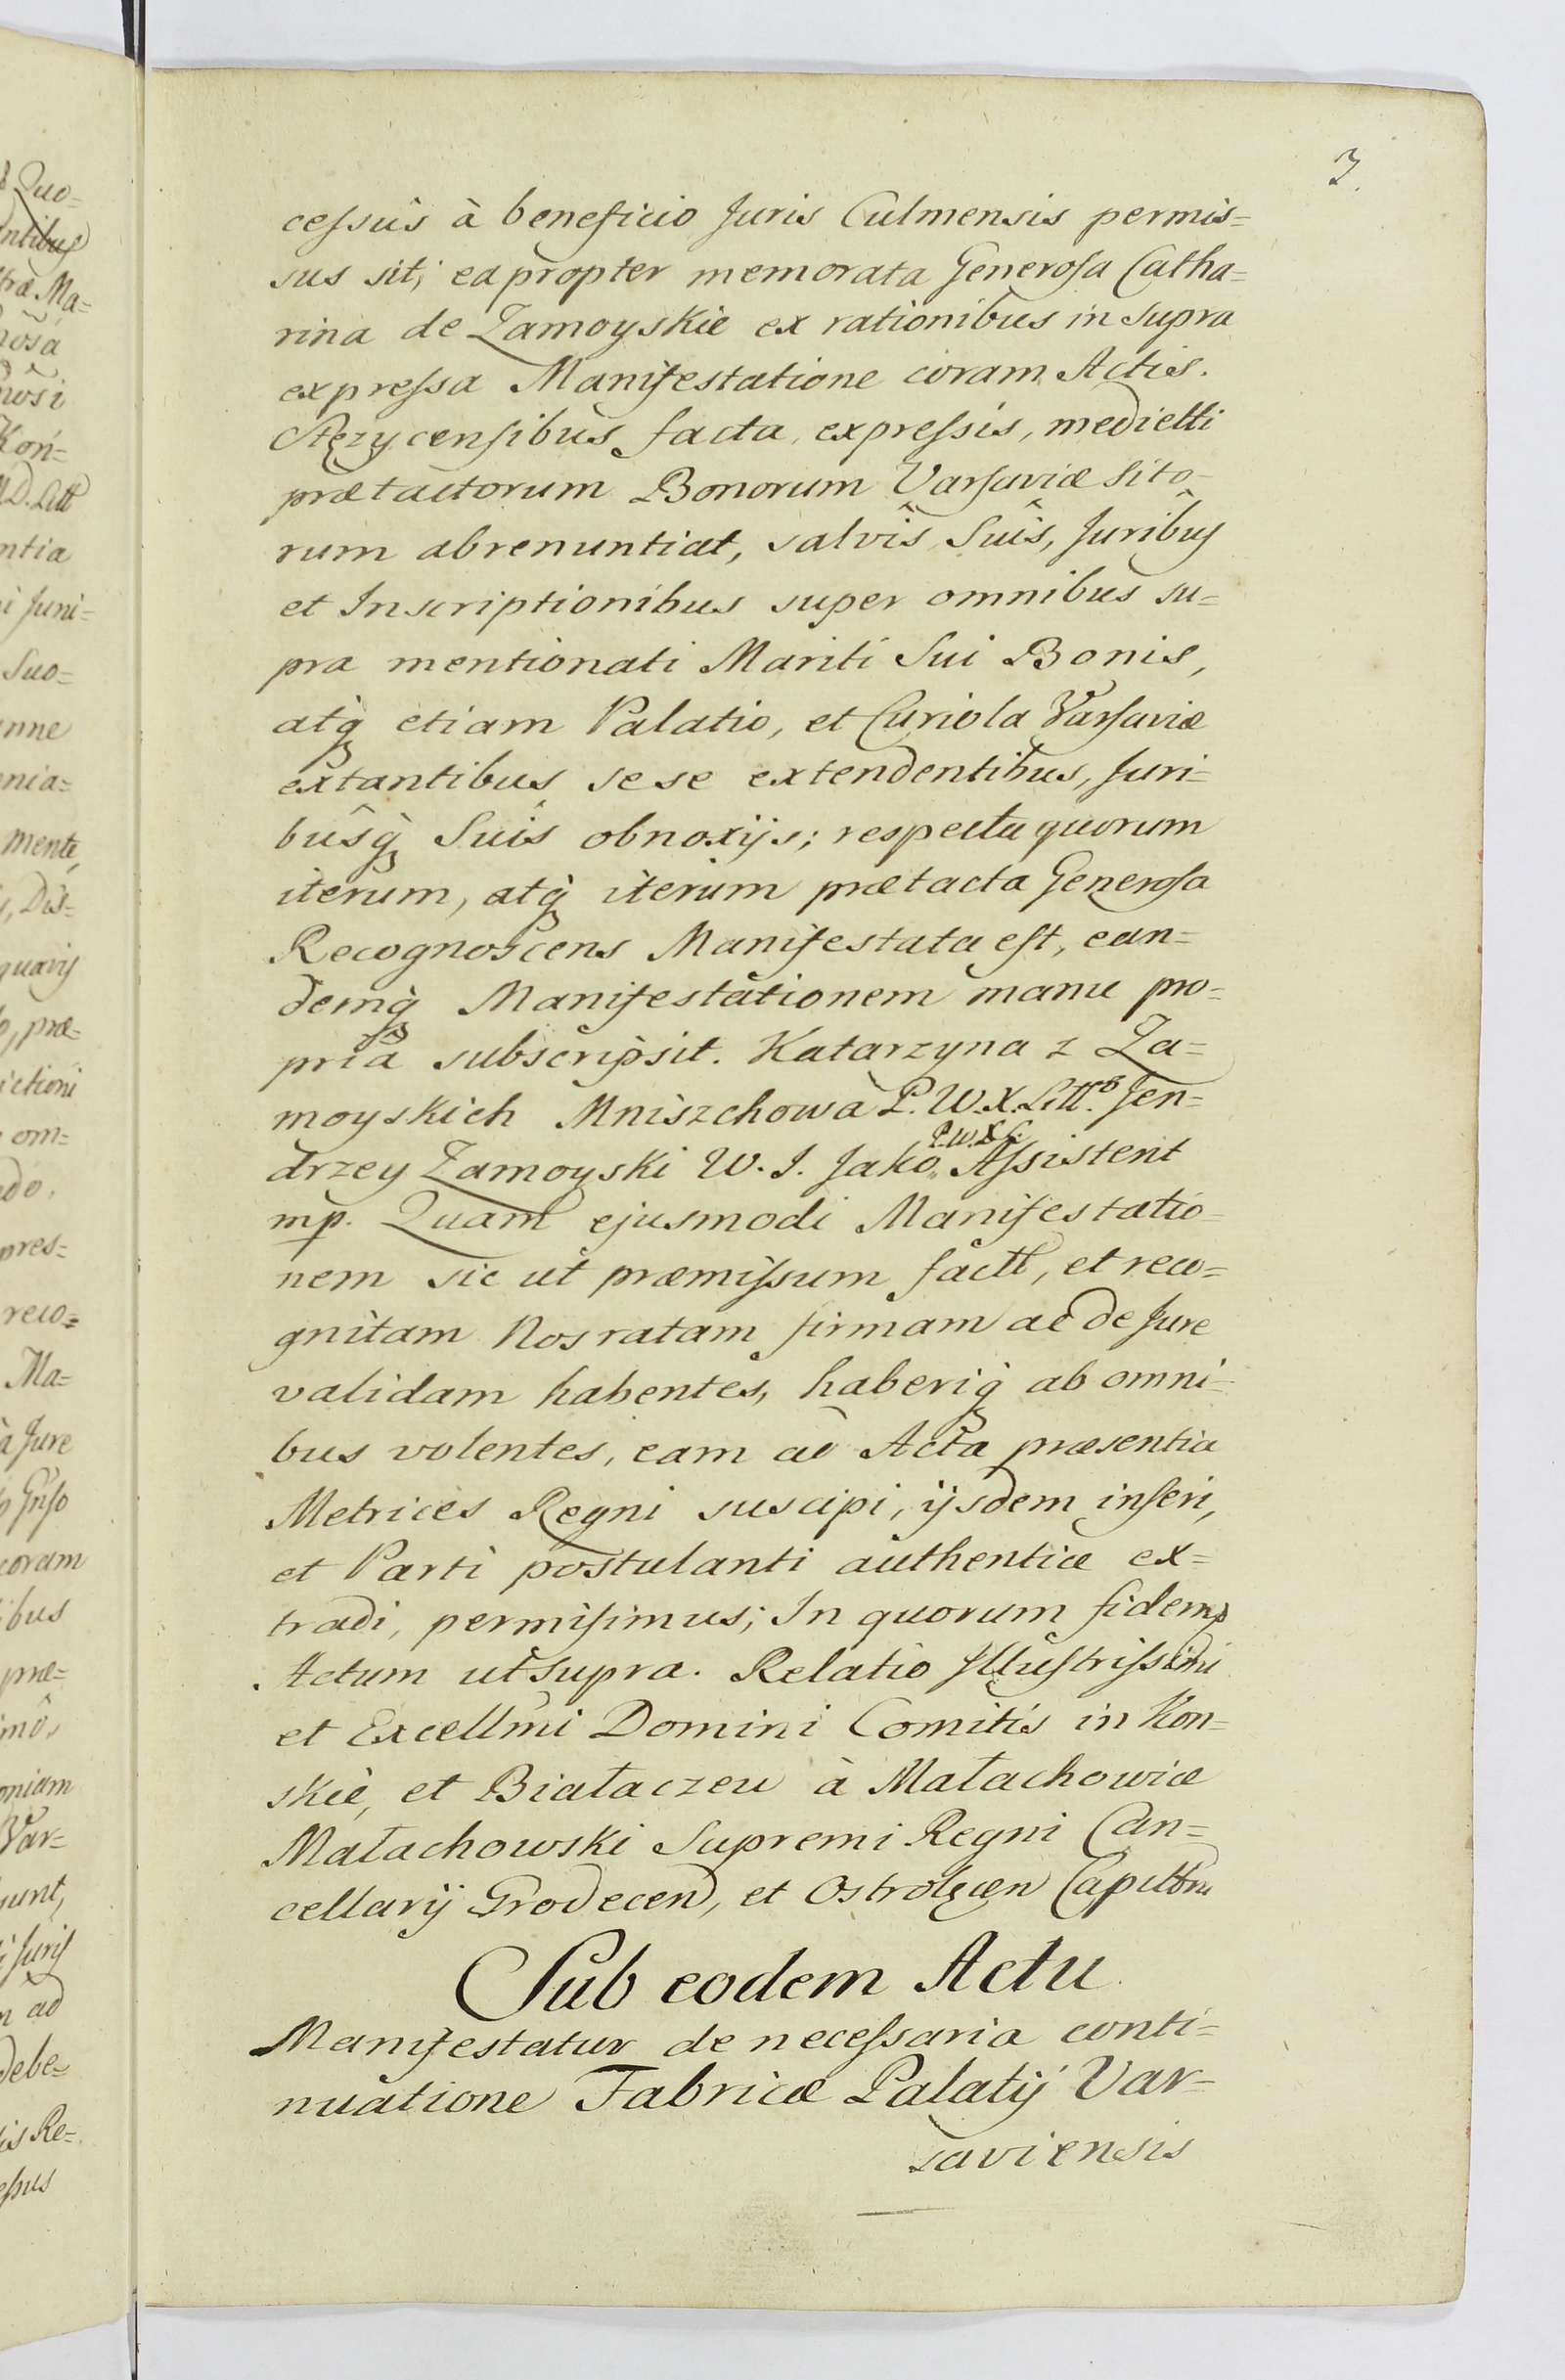 3.
cessûs à beneficio Juris Culmensis permis=
sus sit; eapropter memorata Generosa Catha=
rina de Zamoyskie ex rationibus in supra
expressa Manifestatione coram Actis.
Stęzycensibus facta, expressis, medietti
prætactorum Bonorum Varsaviæ sito-
rum abrenuntiat, salvîs Suîs, Juribûs
et Inscriptionibus super omnibus su=
pra mentionati Mariti Sui Bonis,
atq̀ etiam Palatio, et Curiola Varsaviæ
extantibus sese extendentibus, Juri=
bûsq̀ Suîs obnoxijs; respectu quorum
iterum, atq̀ iterum prætacta Generosa
Recognoscens Manifestata est, ean=
demq̀ Manifestationem manu pro=
pria subscripsit. Katarzyna z Za=
moyskich Mniszchowa P. W. X. Litt. Jen=
P. W. X. L.
drzey Zamoyski W. I. Jako Assistent
mp. Quam ejusmodi Manifestatio=
nem sic ut præmissum factt, et reco=
gnitam Nos ratam firmam ac de Jure
validam habentes, haberiq̀ ab omni=
bus volentes, eam ad Acta præsentia
Metrices Regni suscipi, ijsdem inseri,
et Parti postulanti authenticæ ex=
tradi, permisimus; In quorum fidem
Actum ut supra. Relatio Illustrissimi
et Excellmi Domini Comitis in Kon=
skie, et Białaczeu à Małachowice
Małachowski Supremi Regni Can=
cellarij Grodecen, et Ostrołęcen Capittni
Sub eodem Actu
Manifestatur de necessaria conti=
nuatione Fabricæ Palatij Var=
saviensis
Quo=
Ma=
Kon=
ntia
Suo=
nia=
mente,
quavis
præ=
ictioni
om=
pres=
reco=
Ma=
à Jure
coram
ibus
præ=
oniam
Var=
Juris
ad
debe=
Re=